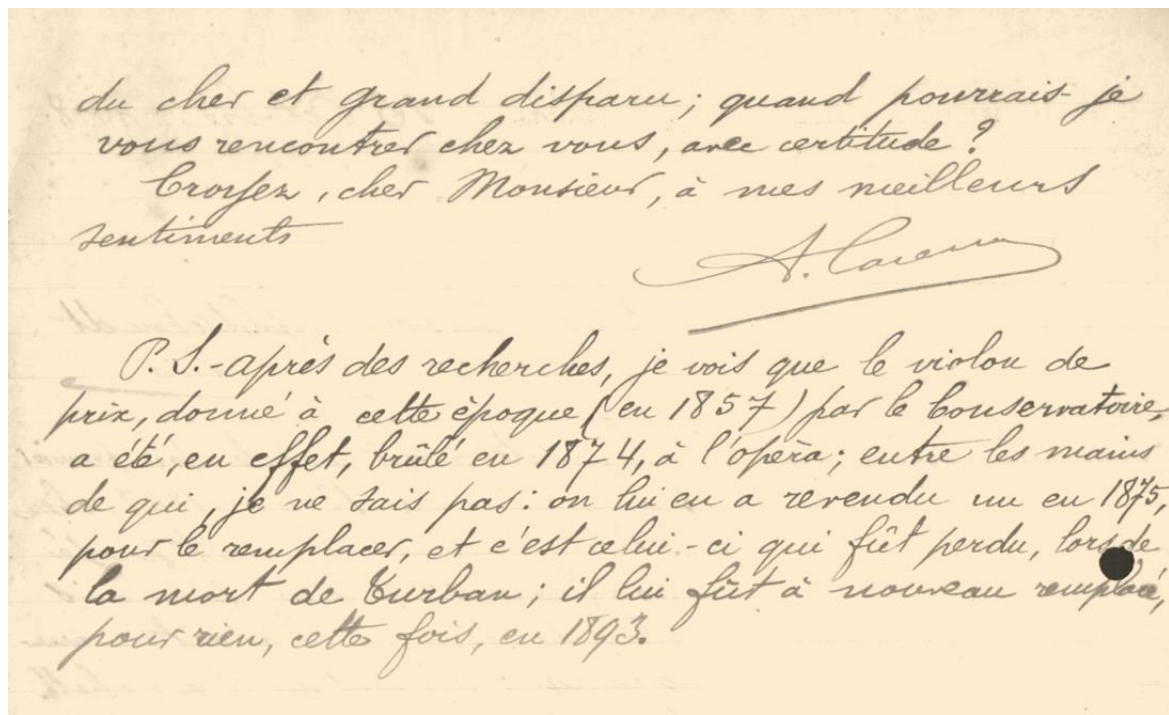 du cher et grand disparu ; quand pourrais-je
vous rencontrer chez vous, avec certitude ?
Croyez, cher Monsieur, à mes meilleurs
sentiments
A. Caressa
P. S. - après des recherches, je vois que le violon de
prix, donné à cette époque (en 1857) par le Conservatoire,
a été, en effet, brûlé en 1874, à l'opèra ; entre les mains
de qui, je ne sais pas : on lui en a revendu un en 1875,
pour le remplacer, et c'est celui-ci qui fût perdu, lors de
la mort de Turban ; il lui fût à nouveau remplacé,
pour rien, cette fois, en 1893.